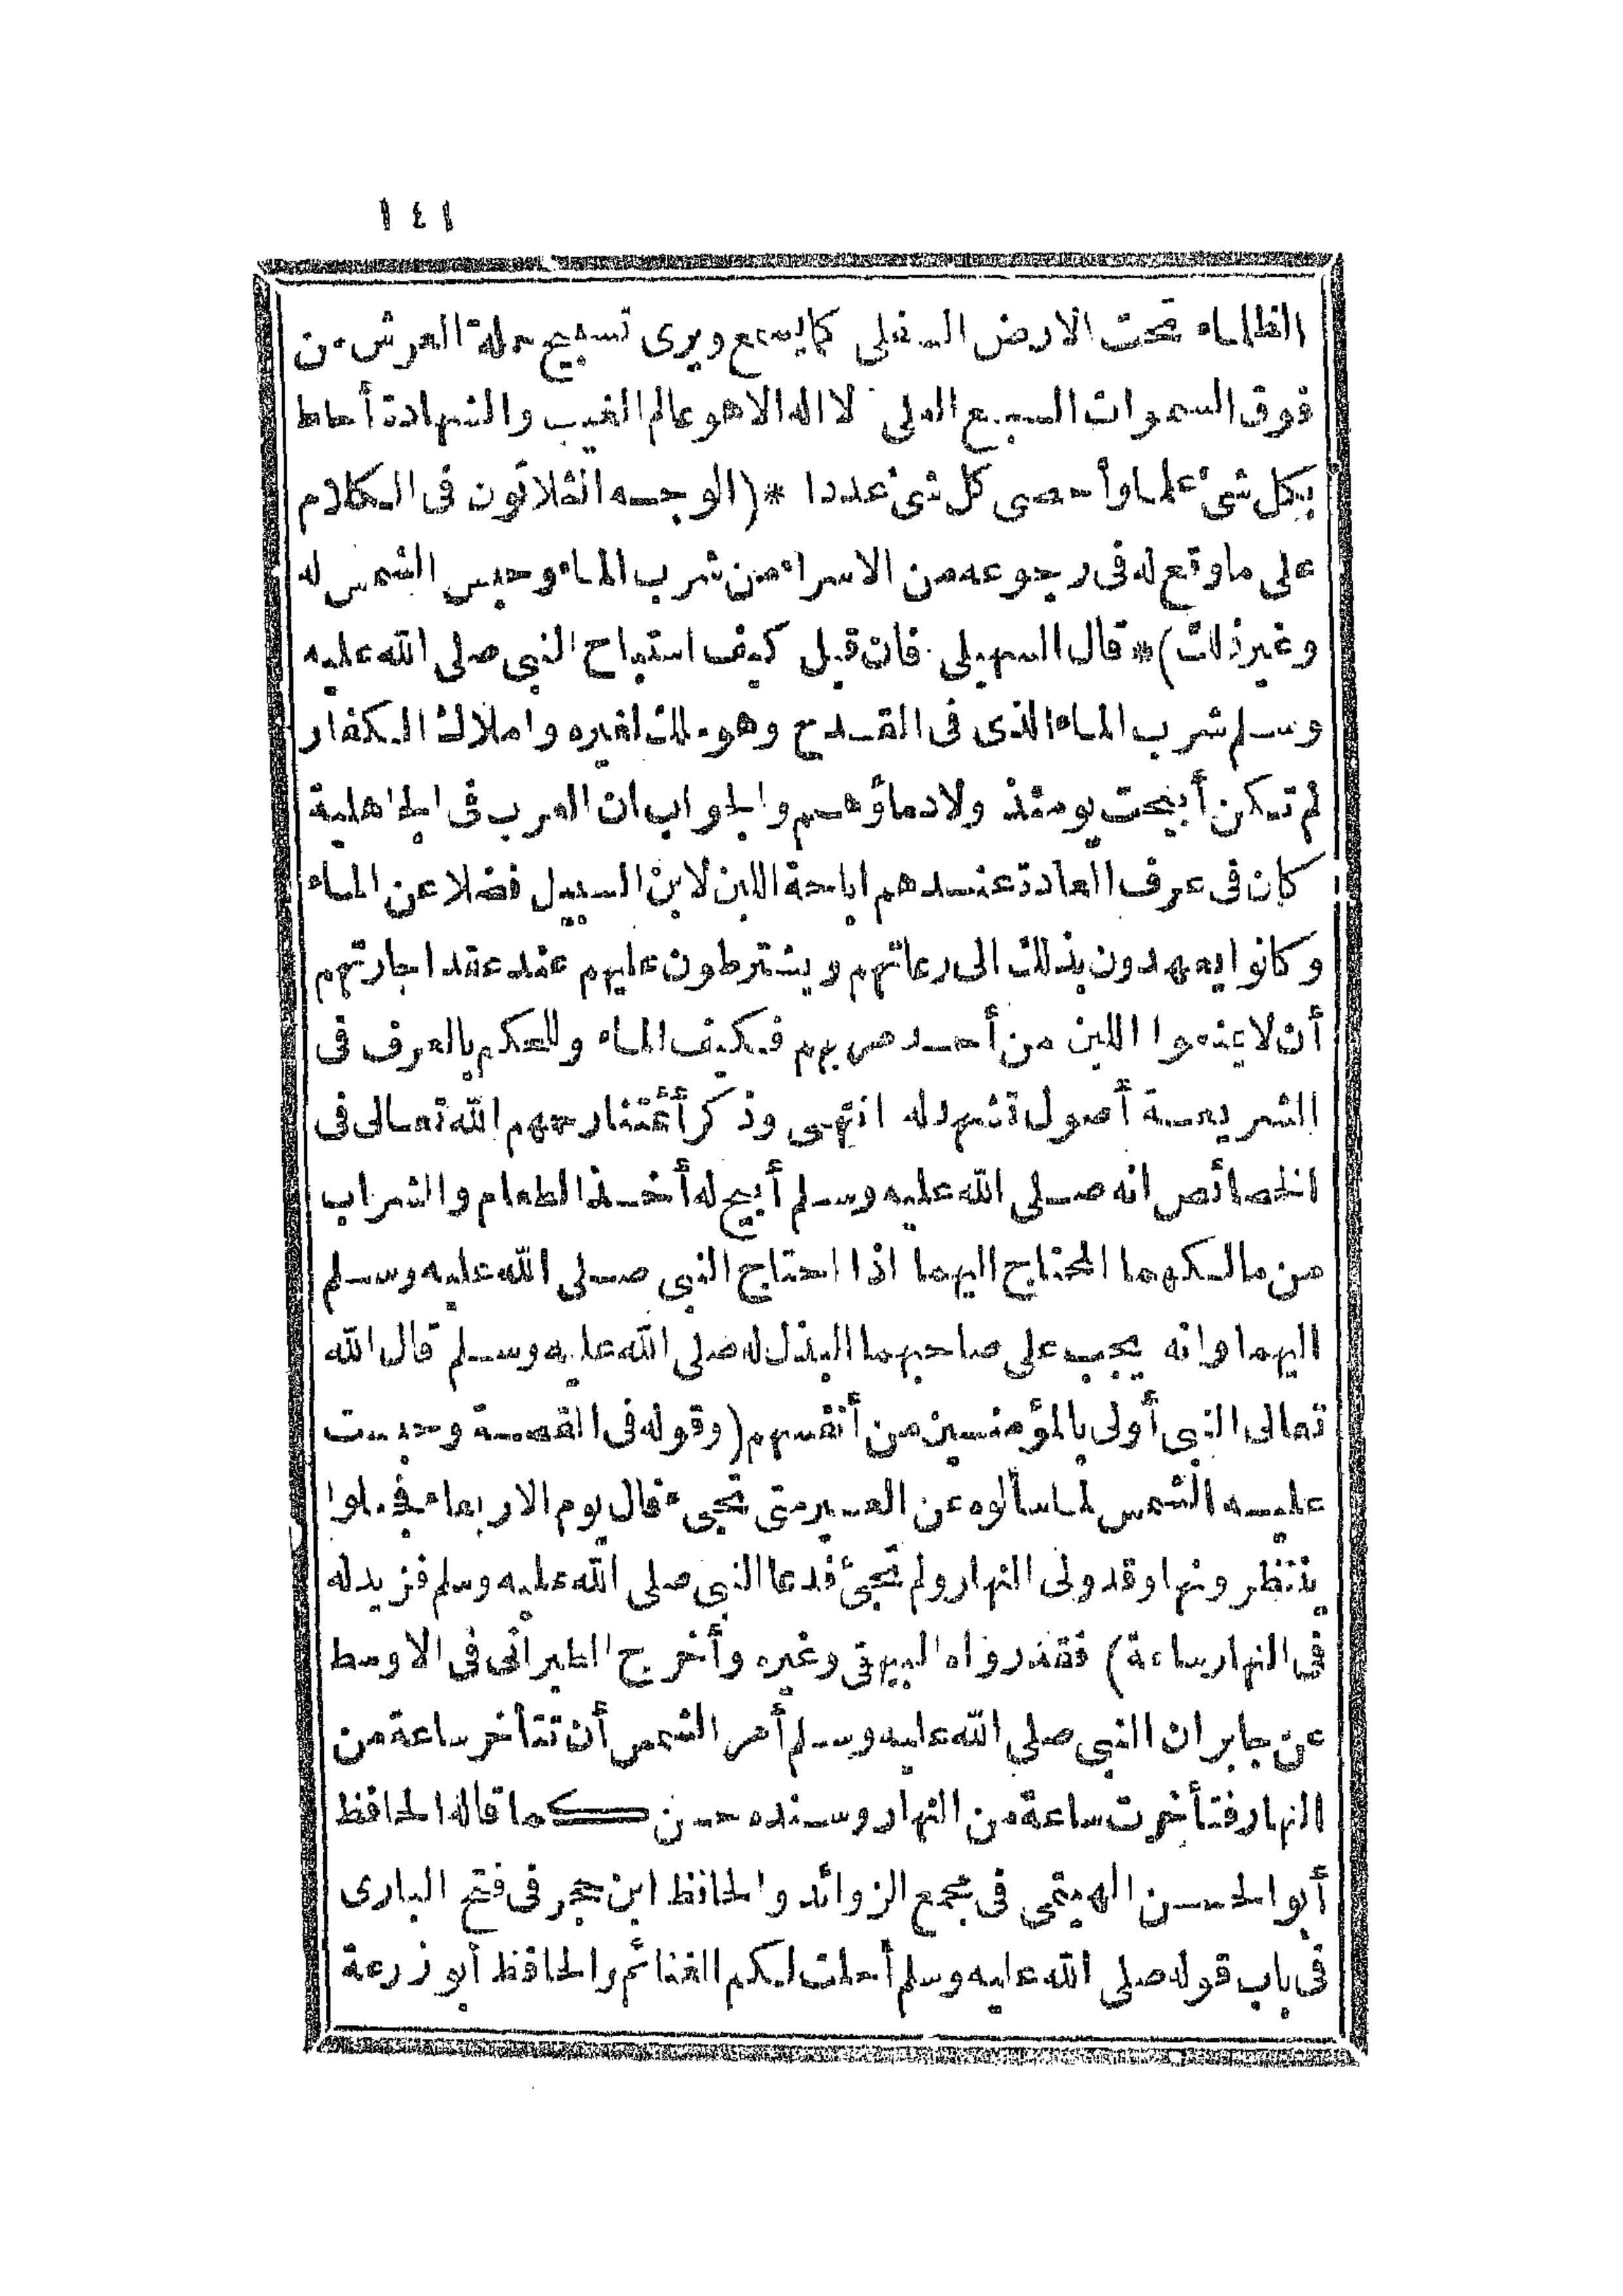 ١٤١
الظلماء تحت الارض السفلى كما يسمع ويرى تسبيح حملة العرش من
فوق السموات السبع العلى لا اله الا هو عالم الغيب والشهادة أحاط
بكل شئ علما وأحصى كل شئ عددا *(الوجه الثلاثون فى الكلام
على ما وقع له فى رجوعه من الاسراء من شرب الماء وحبس الشمس له
وغير ذلك)* قال السهيلى فان قيل كيف استباح النبى صلى الله عليه
وسلم شرب الماء الذى فى القدح وهو ملك لغيره واملاك الكفار
لم تكن أبيحت يومئذ ولا دماؤهم والجواب ان العرب فى الجاهلية
كان فى عرف العادة عندهم اباحة اللبن لابن السبيل فضلا عن الماء
وكانوا يعهدون بذلك الى رعاتهم ويشترطون عليهم عند عقد اجارتهم
أن لا يمنعوا اللبن من أحد مر بهم فكيف الماء وللحكم بالعرف فى
الشريعة أصول تشهد له انتهى وذكر أئمتنا رحمهم الله تعالى فى
الخصائص انه صلى الله عليه وسلم أبيح له أخذ الطعام والشراب
من مالكهما المحتاج اليهما اذا احتاج النبى صلى الله عليه وسلم
اليهما وانه يجب على صاحبهما البذل له صلى الله عليه وسلم قال الله
تعالى النبى أولى بالمؤمنين من أنفسهم (وقوله فى القصة وحبست
عليه الشمس لما سألوه عن العير متى تجىء فقال يوم الاربعاء فجعلوا
ينتظرونها وقد ولى النهار ولم تجئ فدعا النبى صلى الله عليه وسلم فزيد له
فى النهار ساعة) فقد رواه البيهقى وغيره وأخرج الطبرانى فى الاوسط
عن جابر ان النبى صلى الله عليه وسلم أمر الشمس أن تتأخر ساعة من
النهار فتأخرت ساعة من النهار وسنده حسن كما قاله الحافظ
أبو الحسن الهيتمى فى مجمع الزوائد والحافظ ابن حجر فى فتح البارى
فى باب قوله صلى الله عليه وسلم أحلت لكم الغنائم والحافظ أبو زرعة